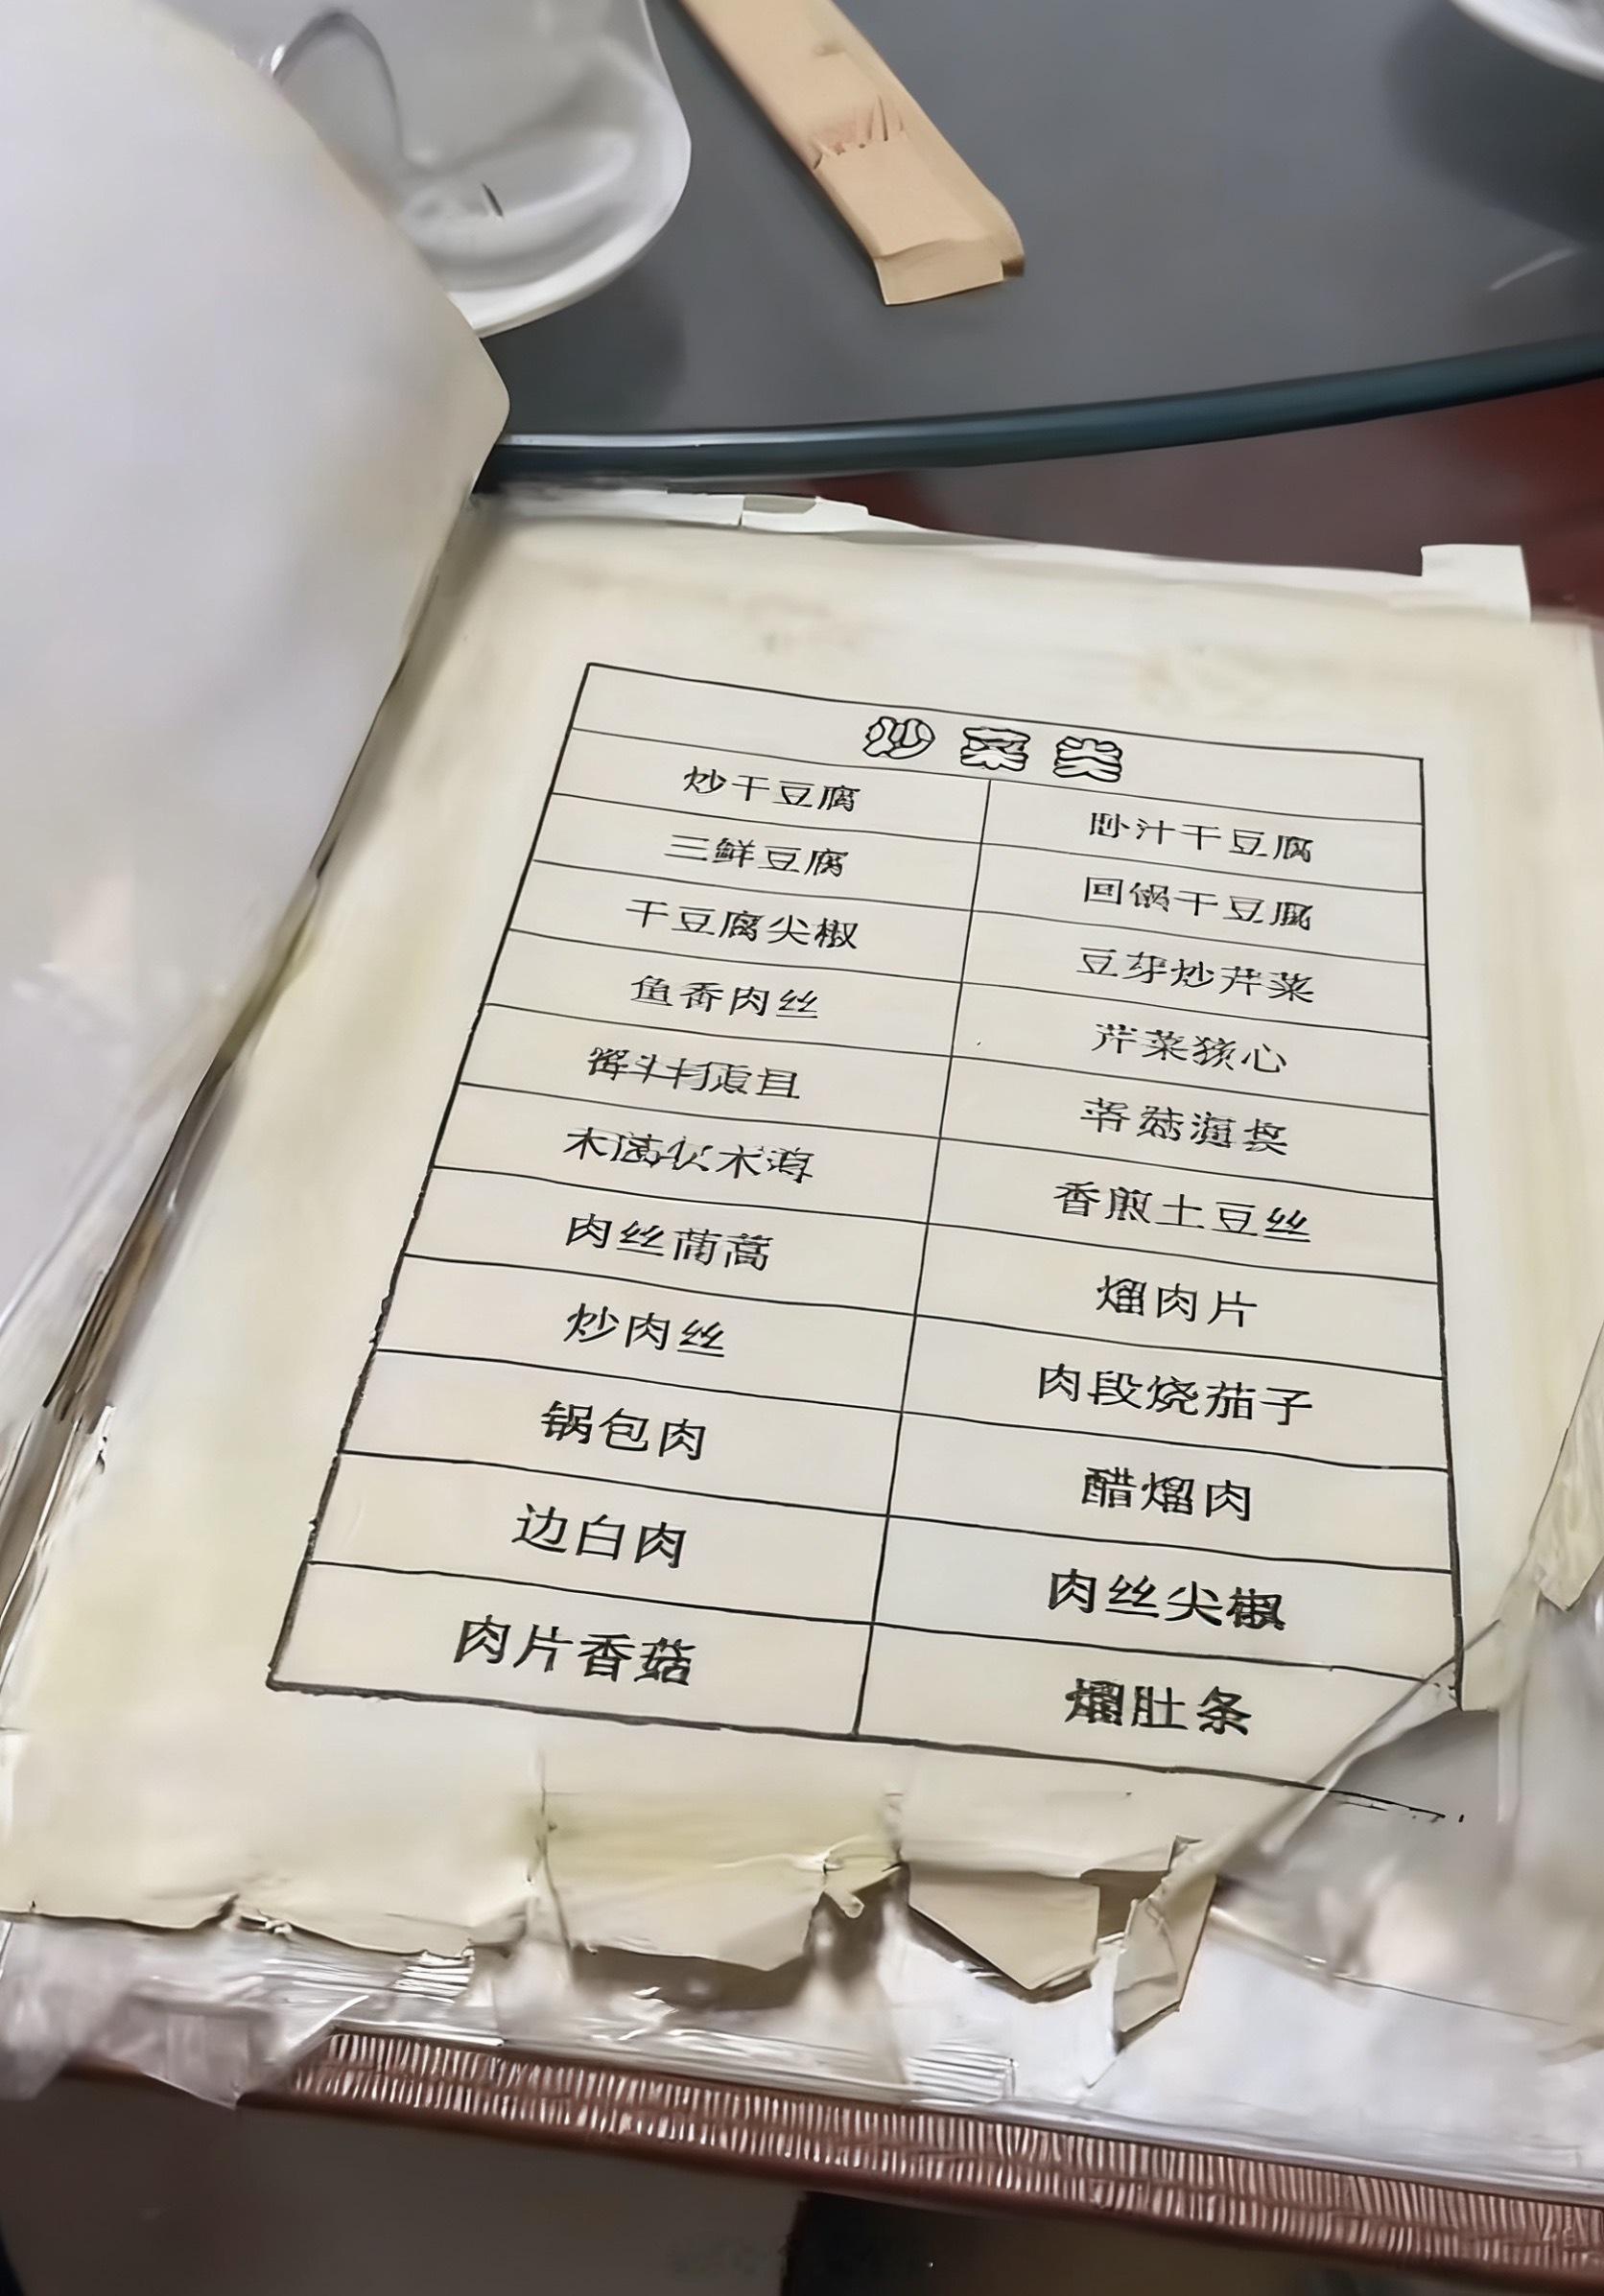 炒菜类
炒干豆腐 卧汁干豆腐
三鲜豆腐 回锅干豆腐
干豆腐尖椒 豆芽炒芹菜
鱼香肉丝 芹菜
心
香煎土豆丝
肉丝蒿 熘肉片
炒肉丝 肉段烧茄子
锅包肉 醋熘肉
边白肉 肉丝尖椒
肉片香菇 熘肚条